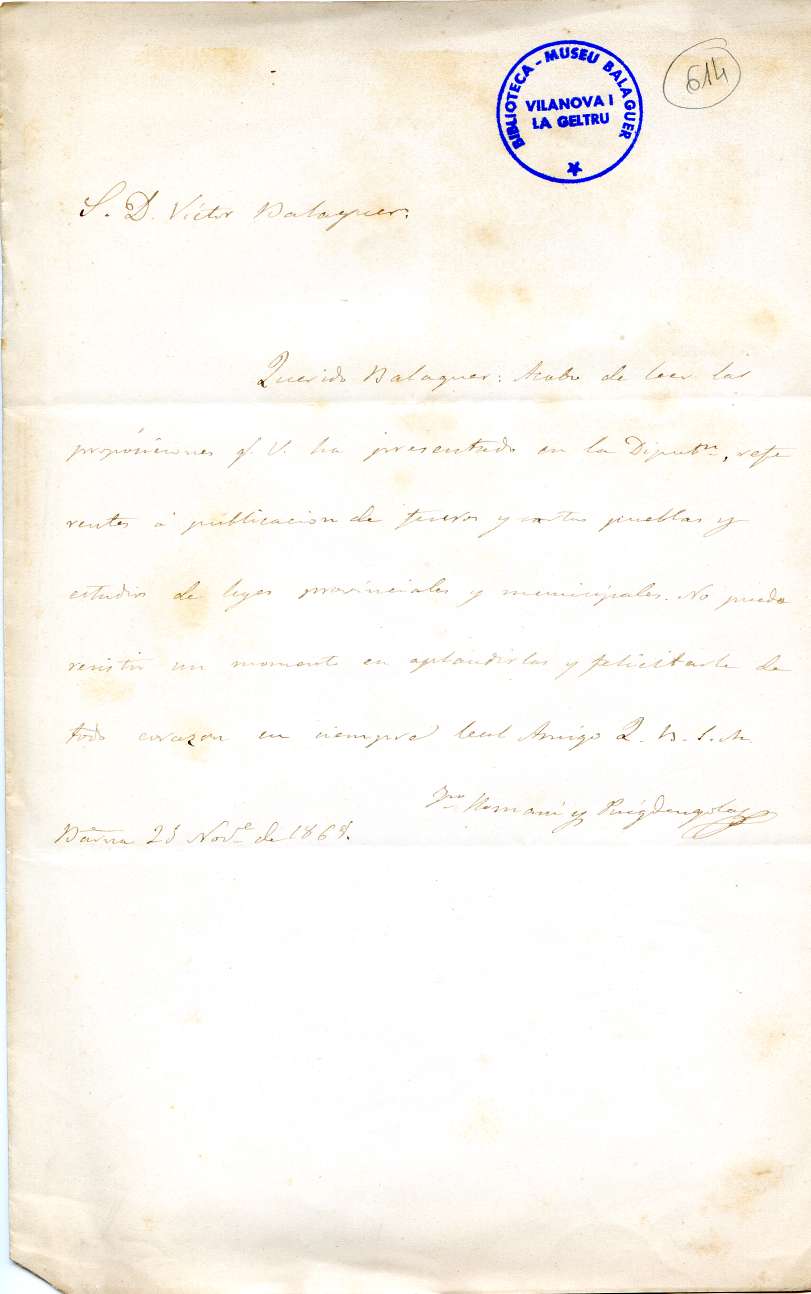 BIBLIOTECA - MUSEU BALAGUER
VILANOVA I
LA GELTRU
614
S. D. Victor Balaguer.
Querido Balaguer: Acabo de leer las
proposiciones q. V. ha presentado en la Diputn, refe
rentes á publicacion de fueros y cartas pueblas y
estudios de leyes provinciales y municipales. No puedo
resistir un momento en aplaudirlas y felicitarle de
todo corazon su siempre leal Amigo Q. B. S. M.
y Puigdengolas
Barna 25 Nove de 186